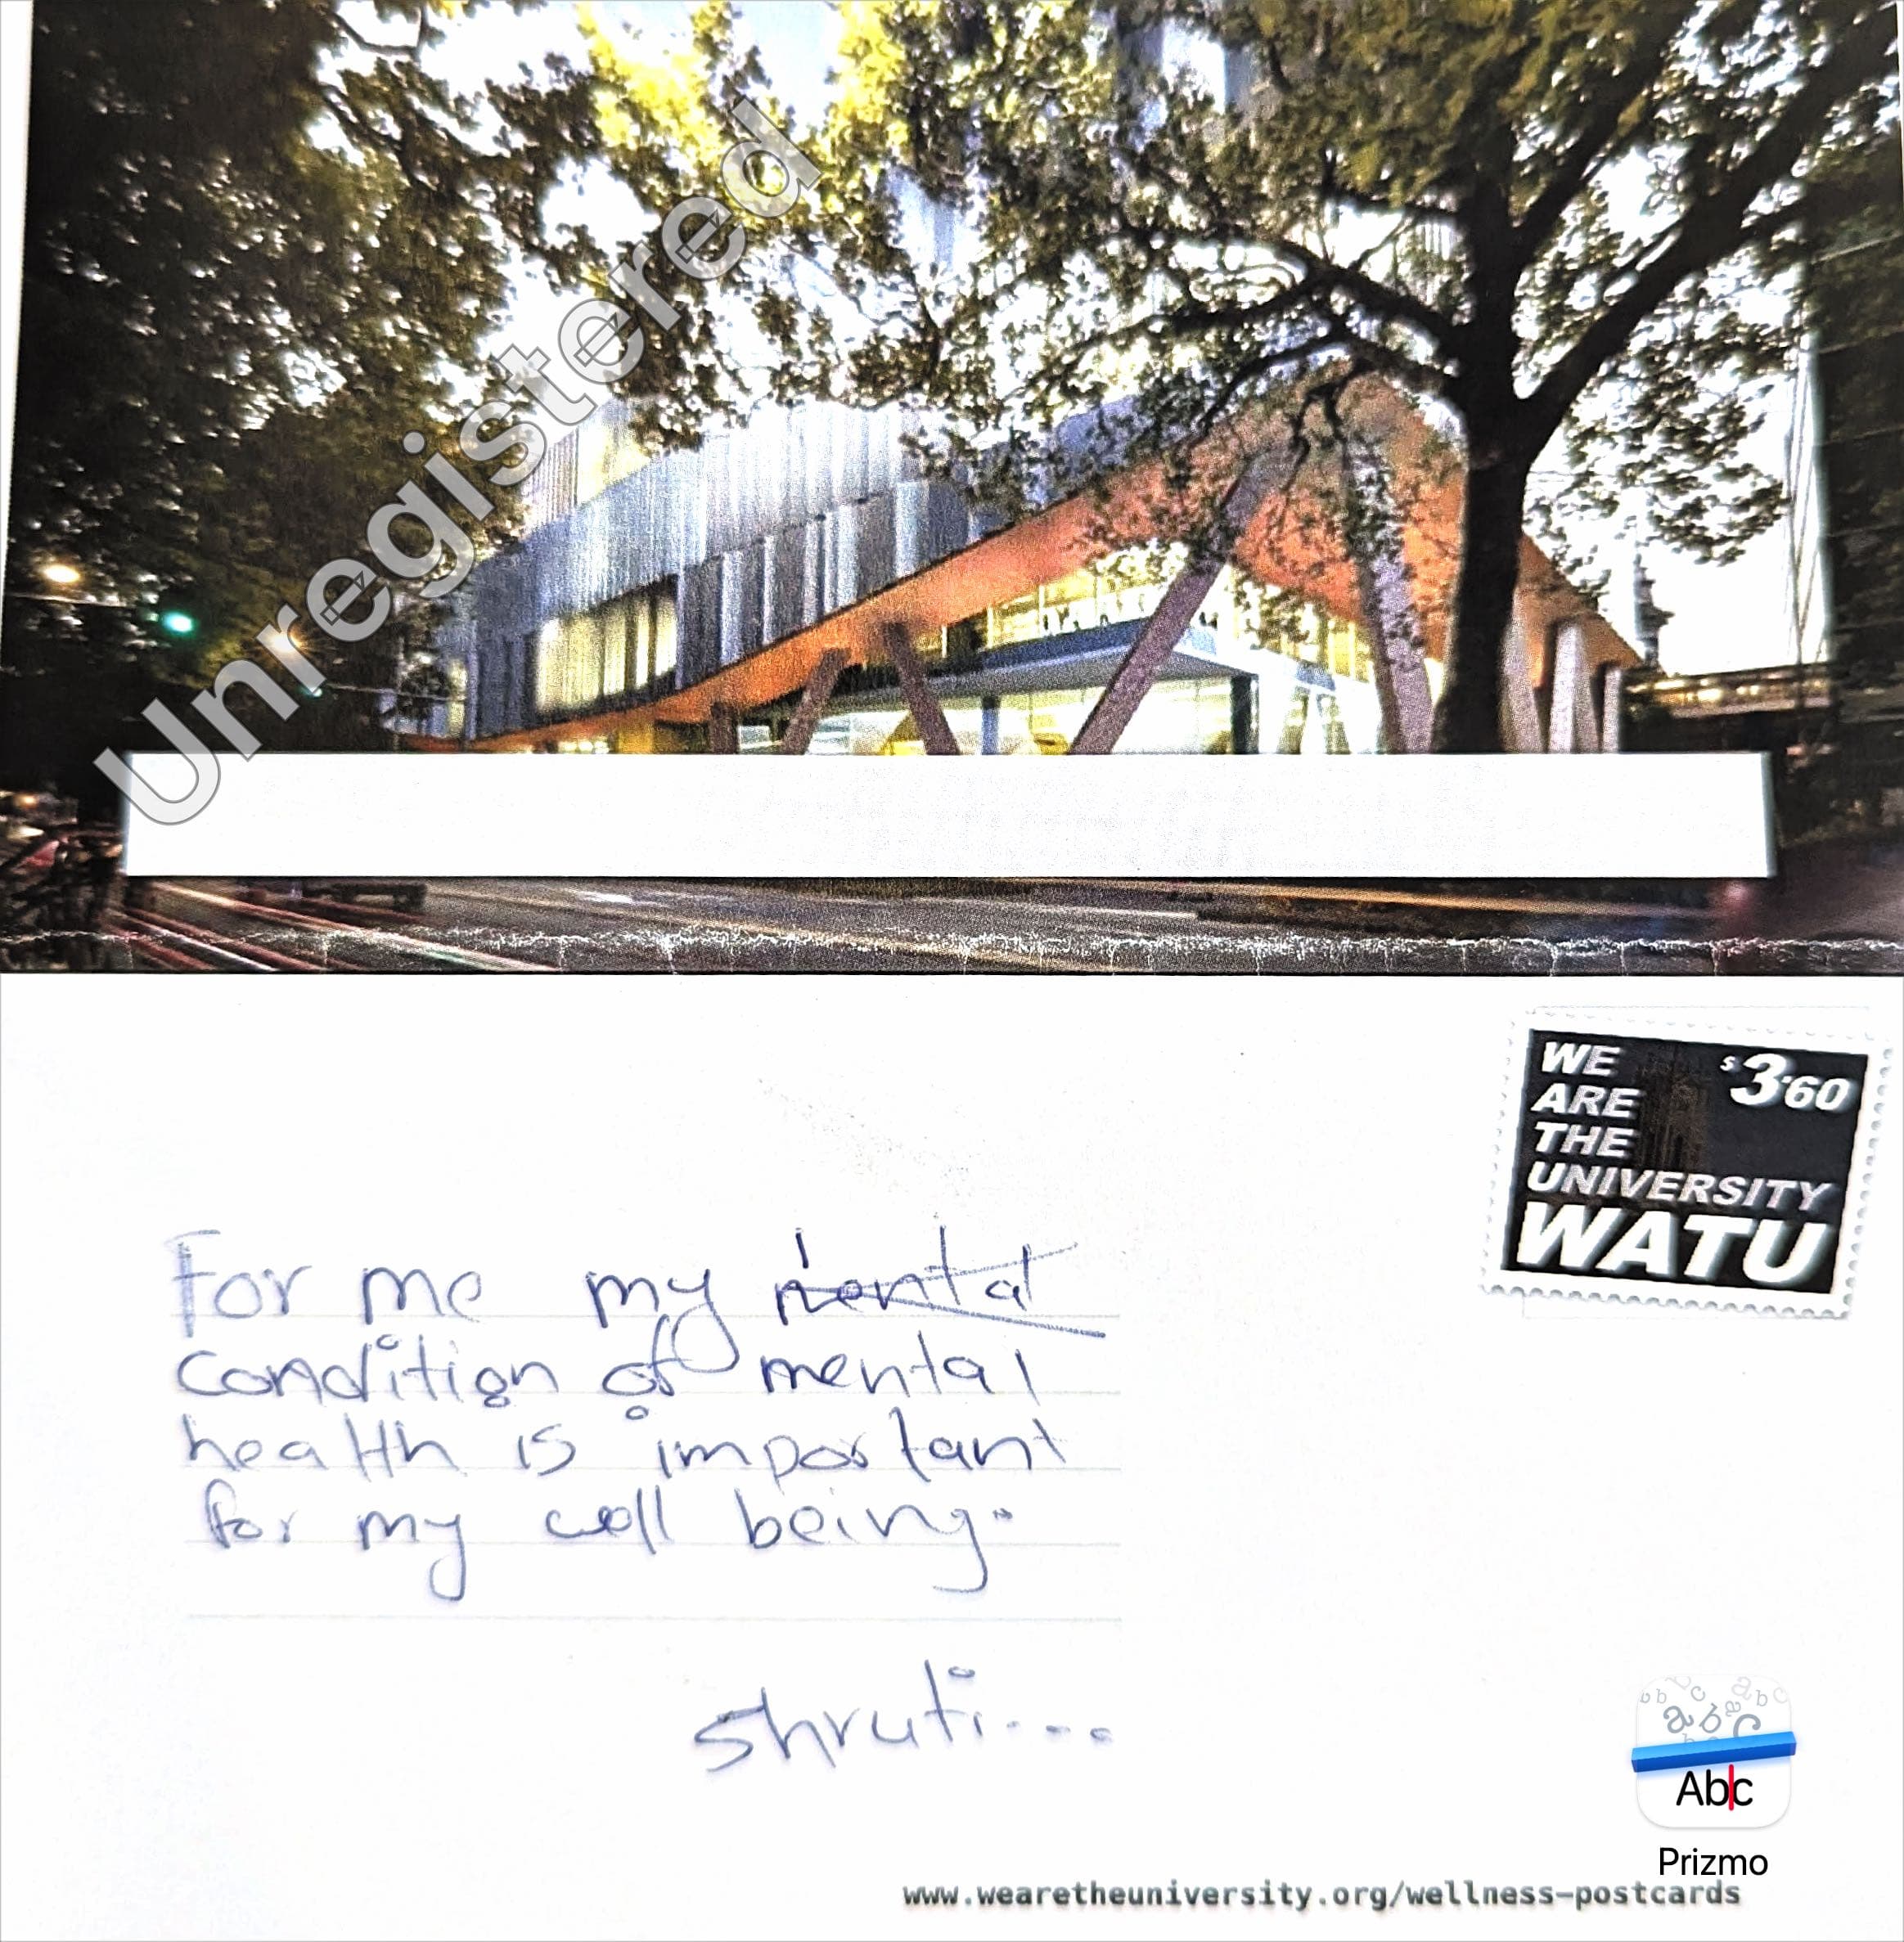 Unregistered
WE
ARE
THE
UNIVERSITY
WATU
$3.60
For me my mental
condition of mental
health is important
for my well being.
Shruti....
Abc
Prizmo
www.wearetheuniversity.org/wellness-postcards